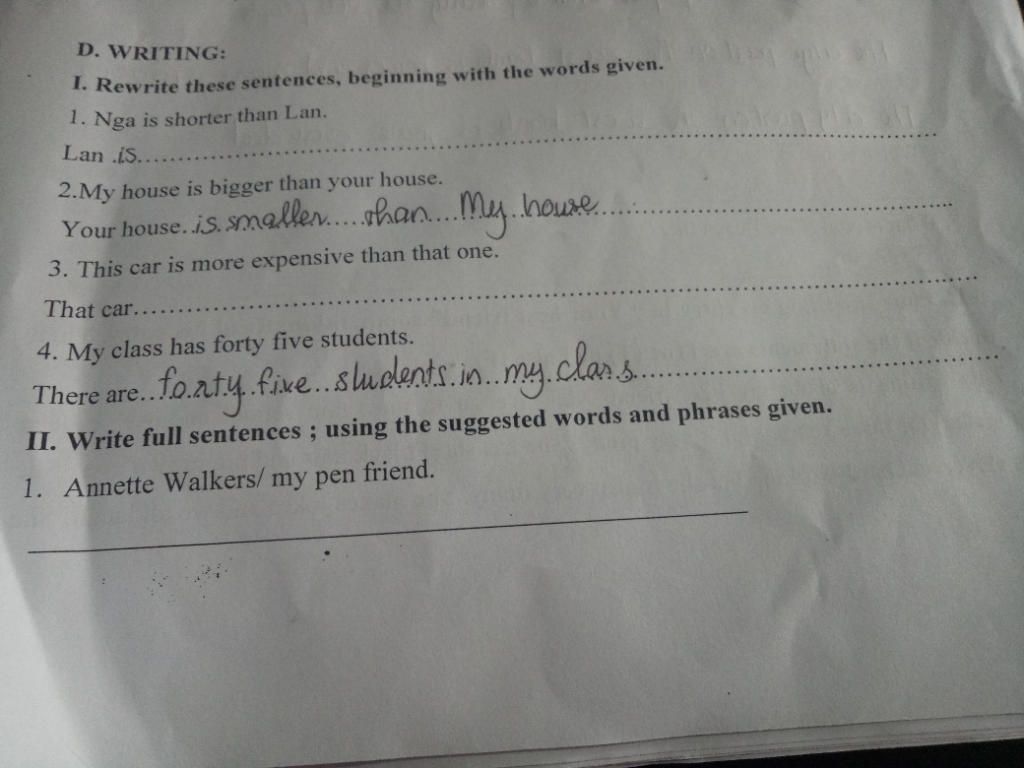 D. WRITING:
I. Rewrite these sentences, beginning with the words given.
1. Nga is shorter than Lan.
Lan .is......................................................................................................
2.My house is bigger than your house.
Your house..is.smaller.....than....My.house.....................................................
3. This car is more expensive than that one.
That car......................................................................................................
4. My class has forty five students.
There are..forty.five..students.in..my.class.....................................................
II. Write full sentences ; using the suggested words and phrases given.
1. Annette Walkers/ my pen friend.